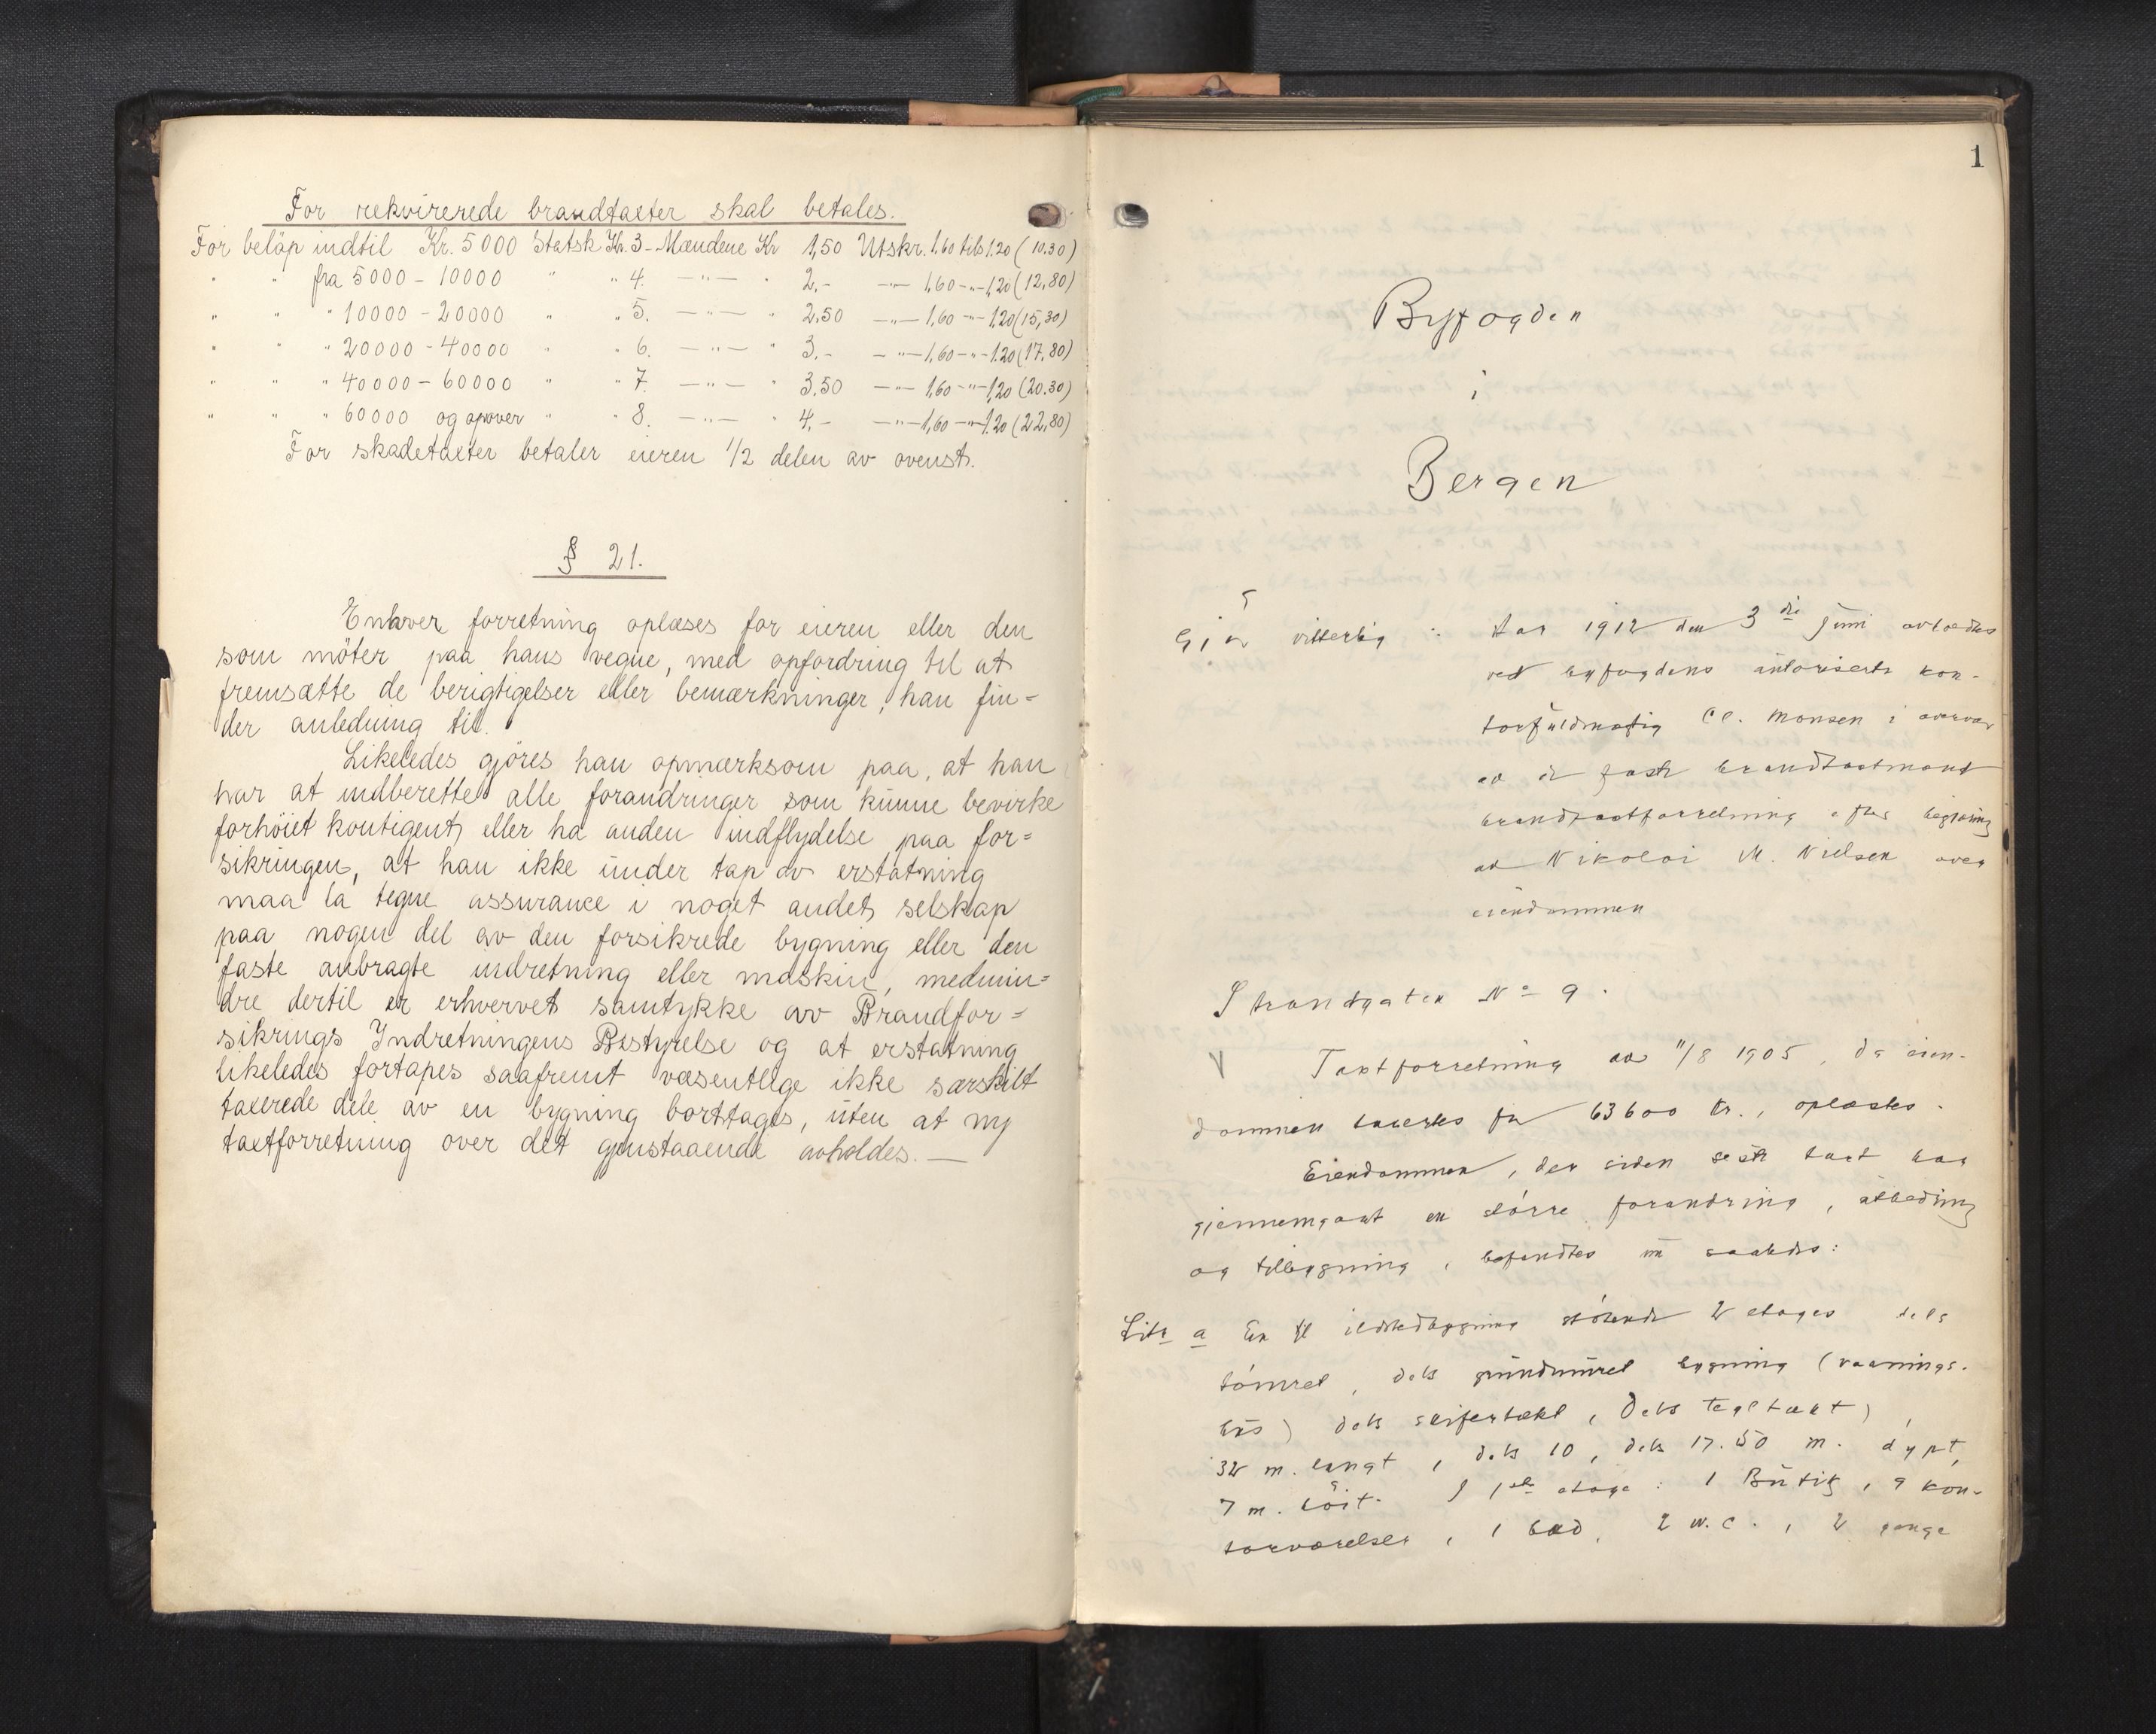 For rekvirerede brandtaxter skal betales.
For beløp indtil Kr. 5000 Statsk Kr. 3 - Mændene Kr 1,50 Utskr. 1.60 tils 1.20 (10.30)
" " fra 5000 - 10000 " " 4. —"— " 2.- —"— 1,60 -"- 1,20 (12,80)
" " " 10000 - 20000 " " 5. —"— " 2,50 —"— 1,60 -"- 1,20 (15,30)
" " " 20000 - 40000 " " 6. —"— " 3.- —"— 1,60 -"- 1.20 (17,80)
" " " 40000 - 60000 " " 7. —"— " 3,50 —"— 1,60 -"- 1,20 (20.30)
" " " 60000 og opover " " 8. —"— " 4.- —"— 1,60 -"- 1.20 (22,80)
For skadetaxter betaler eieren 1/2 delen av ovenst.
§ 21.
Enhver forretning oplæses for eieren eller den
som möter paa hans vegne, med opfordring til at
fremsætte de berigtigelser eller bemærkninger, han fin=
der anledning til.
Likeledes gjöres han opmærksom paa, at han
har at indberette alle forandringer som kunne bevirke
forhöiet kontigent, eller ha anden indflydelse paa for=
sikringen, at han ikke under tap av erstatning
maa la tegne assurance i noget andet selskap
paa nogen del av den forsikrede bygning eller den
faste anbragte indretning eller maskin, medmin=
dre dertil er erhvervet samtykke av Brandfor=
sikrings Indretningens Bestyrelse og at erstatning
likeledes fortapes saafremt væsentlige ikke særskilt
taxerede dele av en bygning borttages, uten at ny
taxtforretning over det gjenstaaende avholdes. —
1
Byfogden
i
Bergen
Gjør vitterlig : Aar 1912 den 3die juni avholdtes
ved byfogdens autoriserte kon-
torfuldmægtig Cl. Monsen i overvær
av de faste brandtaxtmænd
brandtaxtforretning efter begjæring
av Nikolai M. Nielsen over
eiendommen
Strandgaten No 9.
V Taxtforretning av 11/8 1905, da eien-
dommen taxertes for 63600 kr., oplæstes.
Eiendommen, der siden siste taxt har
gjennemgaat en större forandring, utbedring
og tilbygning, befandtes nu saaledes:
Litr a En til ildstedbygning stötende 2 etages dels
tömret, dels grundmuret bygning (vaanings-
hus) dels skifertækt, dels tegltækt),
32 m. langt, dels 10, dels 17.50 m. dypt,
7 m. höit. I 1ste etage : 1 Butik, 9 kon-
torværelser, 1 bad, 2 W.C., 2 gange